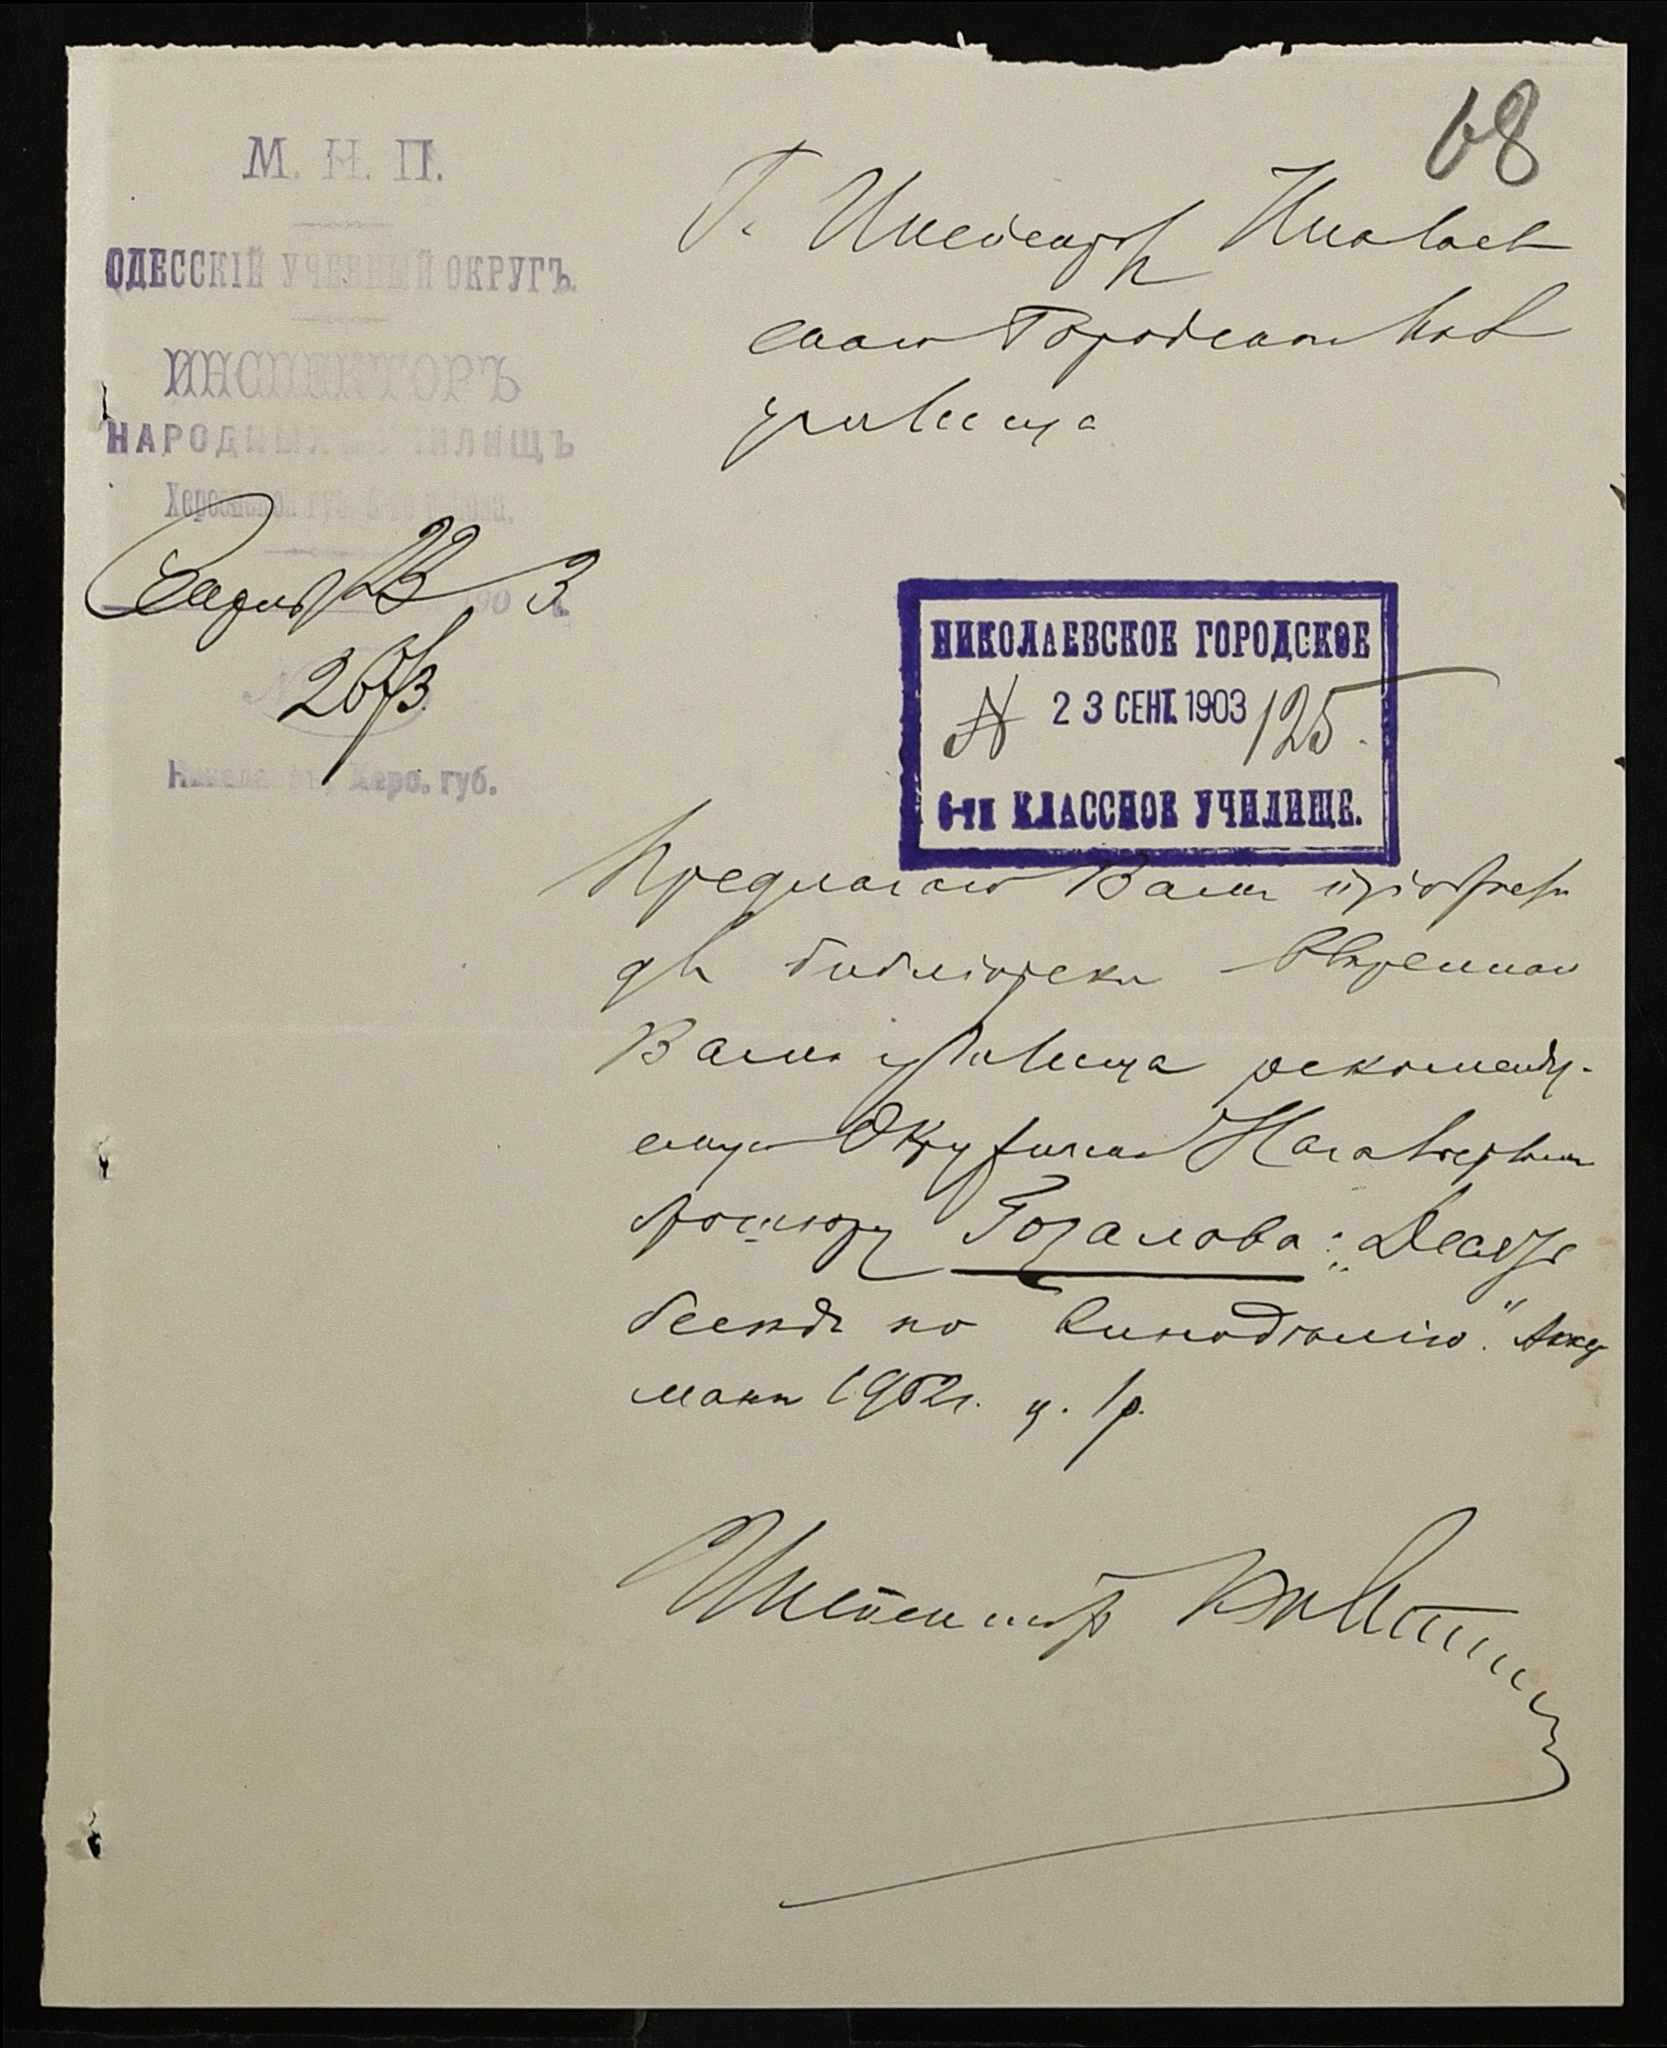 68
М. Н. П.
ОДЕССКІЙ УЧЕБНЫЙ ОКРУГЪ.
ИНСПЕКТОРЪ
НАРОДНЫХЪ УЧИЛИЩЪ
Херсонской губ.
23 190 3 г.
№
Николаевъ, Херс. губ.
Г. Инспектору Николаев
скаго Городского
училища
НИКОЛАЕВСКОЕ ГОРОДСКОЕ
№ 23 СЕНТ. 1903 125.
6-ти КЛАССНОЕ УЧИЛИЩЕ.
Предлагаю Вамъ пріобрѣсти
для библіотеки ввѣреннаго
Вамъ училища рекоменду-
емую Окружнымъ Началь
брошюру Гозалова: „Десять
бесѣдъ по винодѣлію". Аккер
манъ 1902 г. ц. 1 р.
Инспекторъ